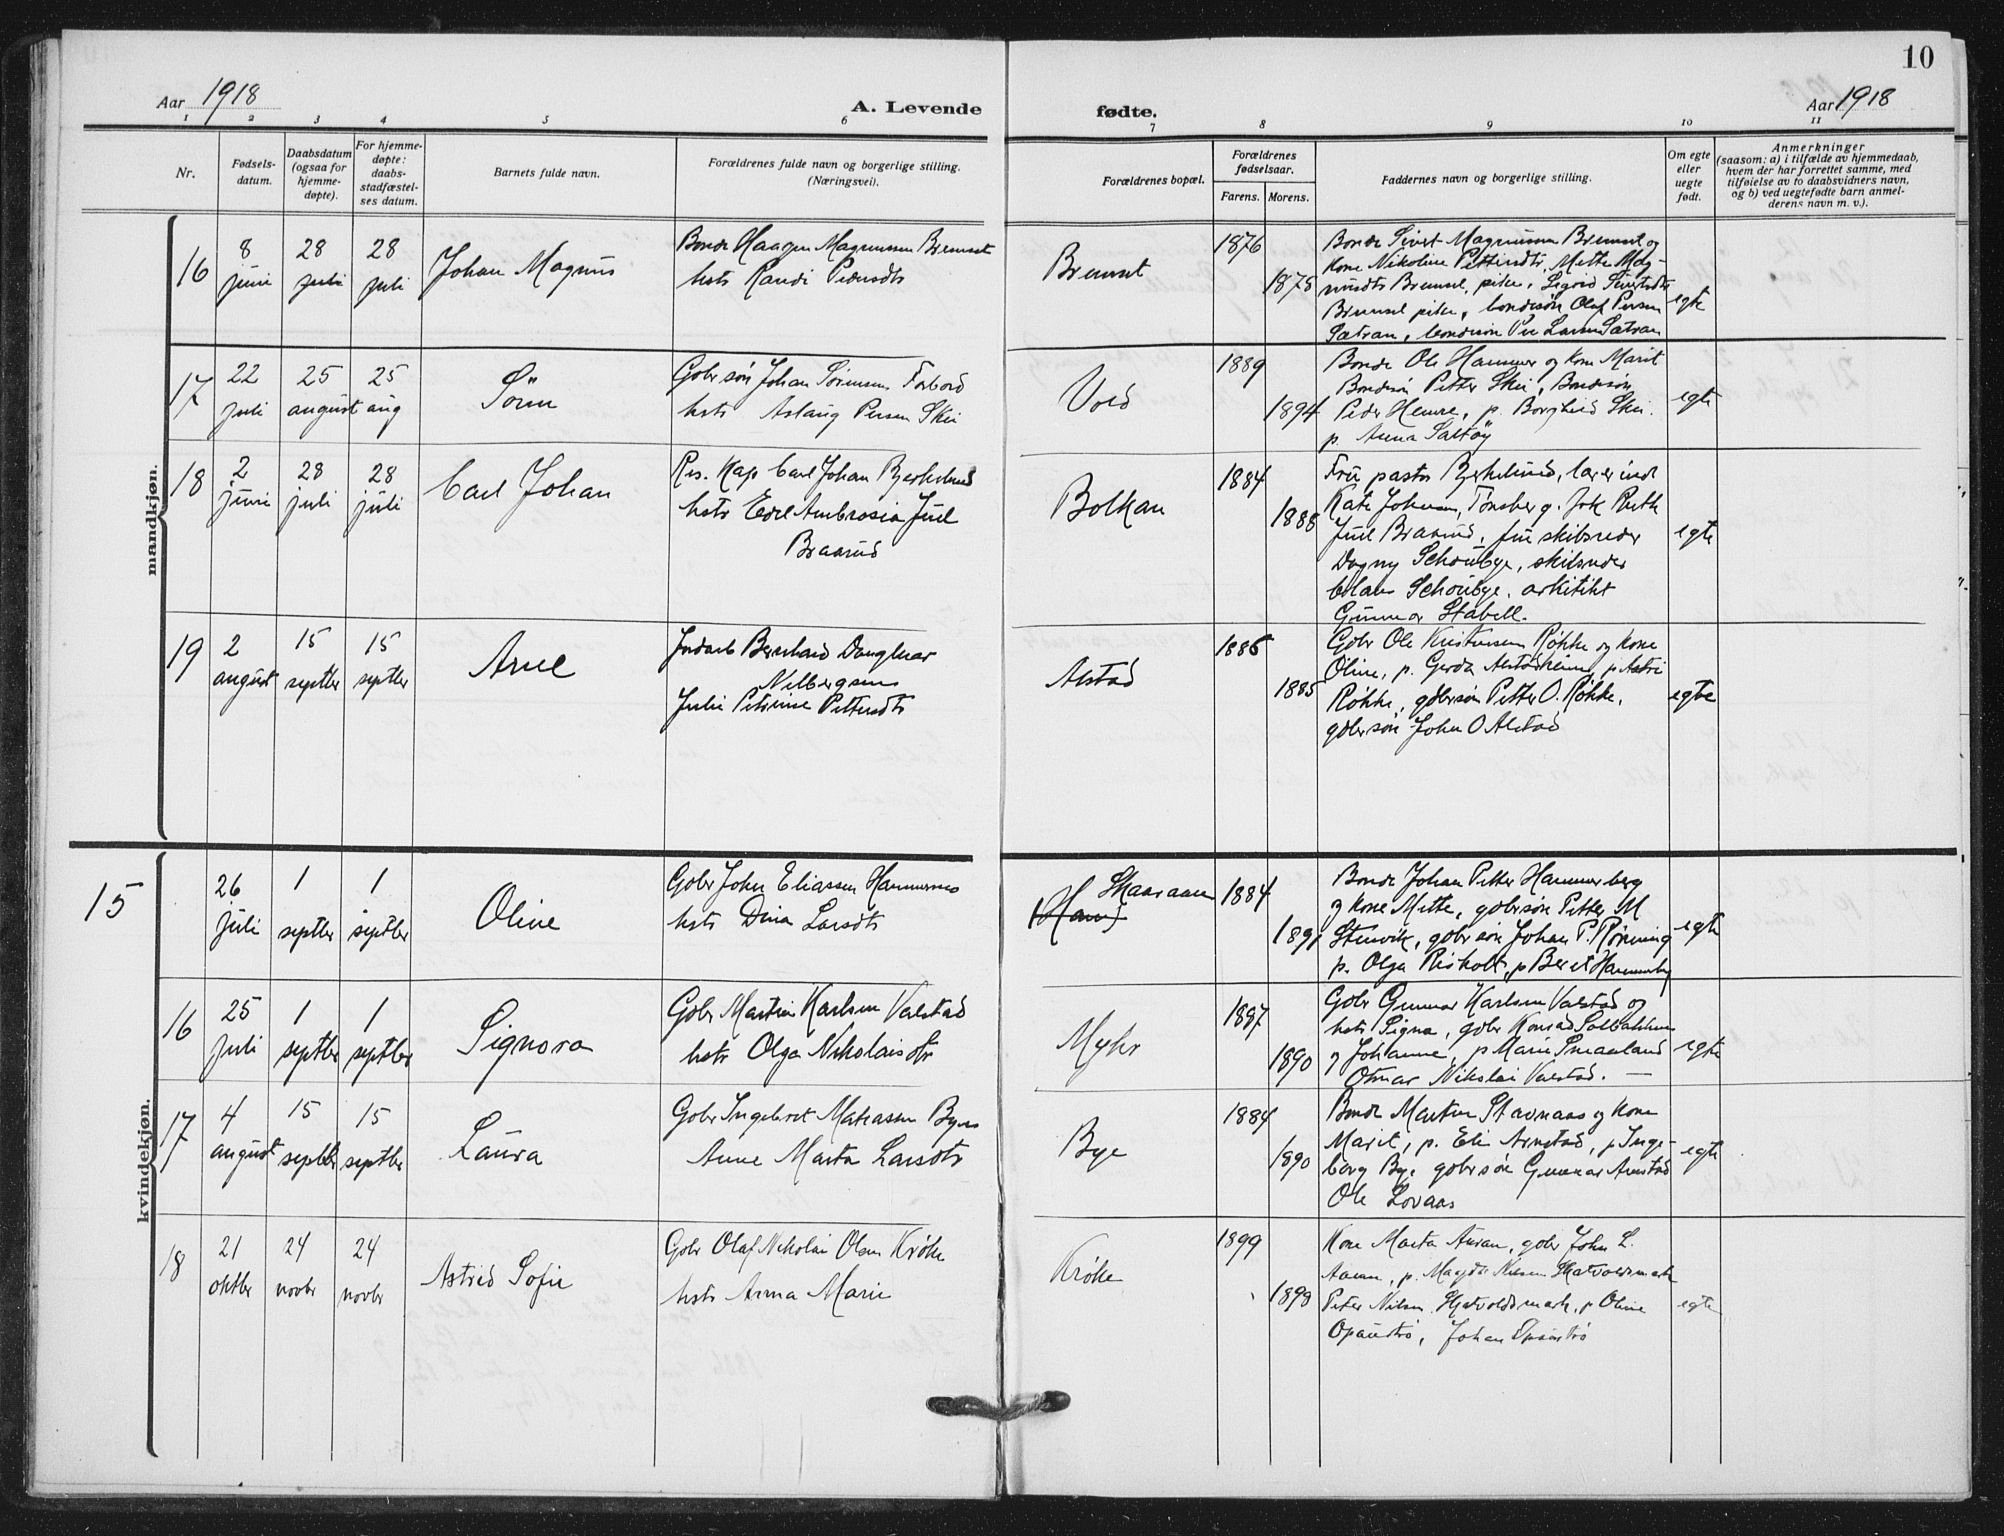 10
Aar 1918
A. Levende
fødte.
Aar 1918
1 2 3 4 5 6 7 8 9 10 11
Nr.
Fødsels-
datum.
Daabsdatum
(ogsaa for
hjemme-
døpte).
For hjemme-
døpte:
daabs-
stadfæstel-
ses datum.
Barnets fulde navn.
Forældrenes fulde navn og borgerlige stilling.
(Næringsvei).
Forældrenes bopæl.
Forældrenes
fødselsaar.
Farens. Morens.
Faddernes navn og borgerlige stilling.
Om egte
eller
uegte
født.
Anmerkninger
(saasom: a) i tilfælde av hjemmedaab,
hvem der har forrettet samme, med
tilføielse av to daabsvidners navn,
og b) ved uegtefødte barn anmel-
derens navn m. v.).
mandkjøn.
16
8
juni
28
juli
28
juli
Johan Magnus
Bonde Haagen Magnussen Bremset
hstr Randi Pedersdtr
Bremset
1876
1878
Bonde Sivert Magnussen Bremset og
Kone Nikoline Pettersdtr, Mette Mag-
nusdtr Bremset, pike, Sigrid Sivertsdtr
Bremset pike, bondesøn Olaf Persen
Sætran, bondesøn Per Larsen Sætran
egte
17
22
juli
25
august
25
aug
Sören
Gbr søn Johan Sörensen Forbord
hstr Aslaug Persen Skei
Vold
1889
1894
Bonde Ole Hammer og Kone Marit
Bondesøn Petter Skei, Bondesøn
Peder Hemre, p. Borghild Skei.
p. Anna Saltöy
egte
18
2
juni
28
juli
28
juli
Carl Johan
Res. Kap Carl Johan Bjerkelund
hstr Edel Ambrosia Juel
Braarud
Bolkan
1884
1888
Frue pastor Bjerkelund, lærerinde
Kate Johnsen, Tønsberg. frk Ruth
Juel Braarud, frue skibsreder
Dagny Schoubye, skibsreder
Claus Schoubye, arkitekt
Gunnar Stabell.
egte
19
2
august
15
septbr
15
septbr
Arne
Indarb Bernhard Dangmar
Nilbergsens
Julie Petrine Pettersdtr
Alstad
1886
1885
Gbr Ole Kristensen Røkke og Kone
Oline, p. Gerda Alstadheim, p Astri
Røkke, gbrsøn Petter O. Røkke,
gbr søn John O Alstad
egte
kvindekjøn.
15
26
juli
1
septbr
1
septbr
Oline
Gbr John Eliassen Hammernes
hstr Dina Larsdtr
Skaaraan
(Ham)
1884
1891
Bonde Johan Petter Hammerberg
og Kone Mette, gbrsøn Petter M
Stenvik, gbr søn Johan P. Rönning
p. Olga Risholt, p Beret Hammerberg
egte
16
25
juli
1
septbr
1
septbr
Signora
Gbr Martin Karlsen Valstad
hstr Olga Nikolaisdtr
Myhr
1887
1890
Gbr Gunnar Karlsen Valstad og
hstr Signe, gbr Konrad Solbakken
og Johanne, p Marie Smaaland
Otmar Nikolai Valstad. —
egte
17
4
august
15
septbr
15
septbr
Laura
Gbr Ingebret Matiassen Byes
Anne Marta Larsdtr
Bye
1884
1890
Bonde Martin Stavnaas og Kone
Marit, p. Eli Arnstad, p Inge-
borg Bye gbr søn Gunnar Arnstad
Ole Lovaas
egte
18
21
oktbr
24
novbr
24
novbr
Astrid Sofie
Gbr Olaf Nikolai Olsen Krøke
hstr Anna Marie
Krøke
1899
1898
Kone Marta Auran, gbr John L.
Auran, p. Magda Nilsen Skatvoldsmark
Peter Nilsen Skatvoldsmark, p Oline
Opaustrø, Johan Opaustrø
egte